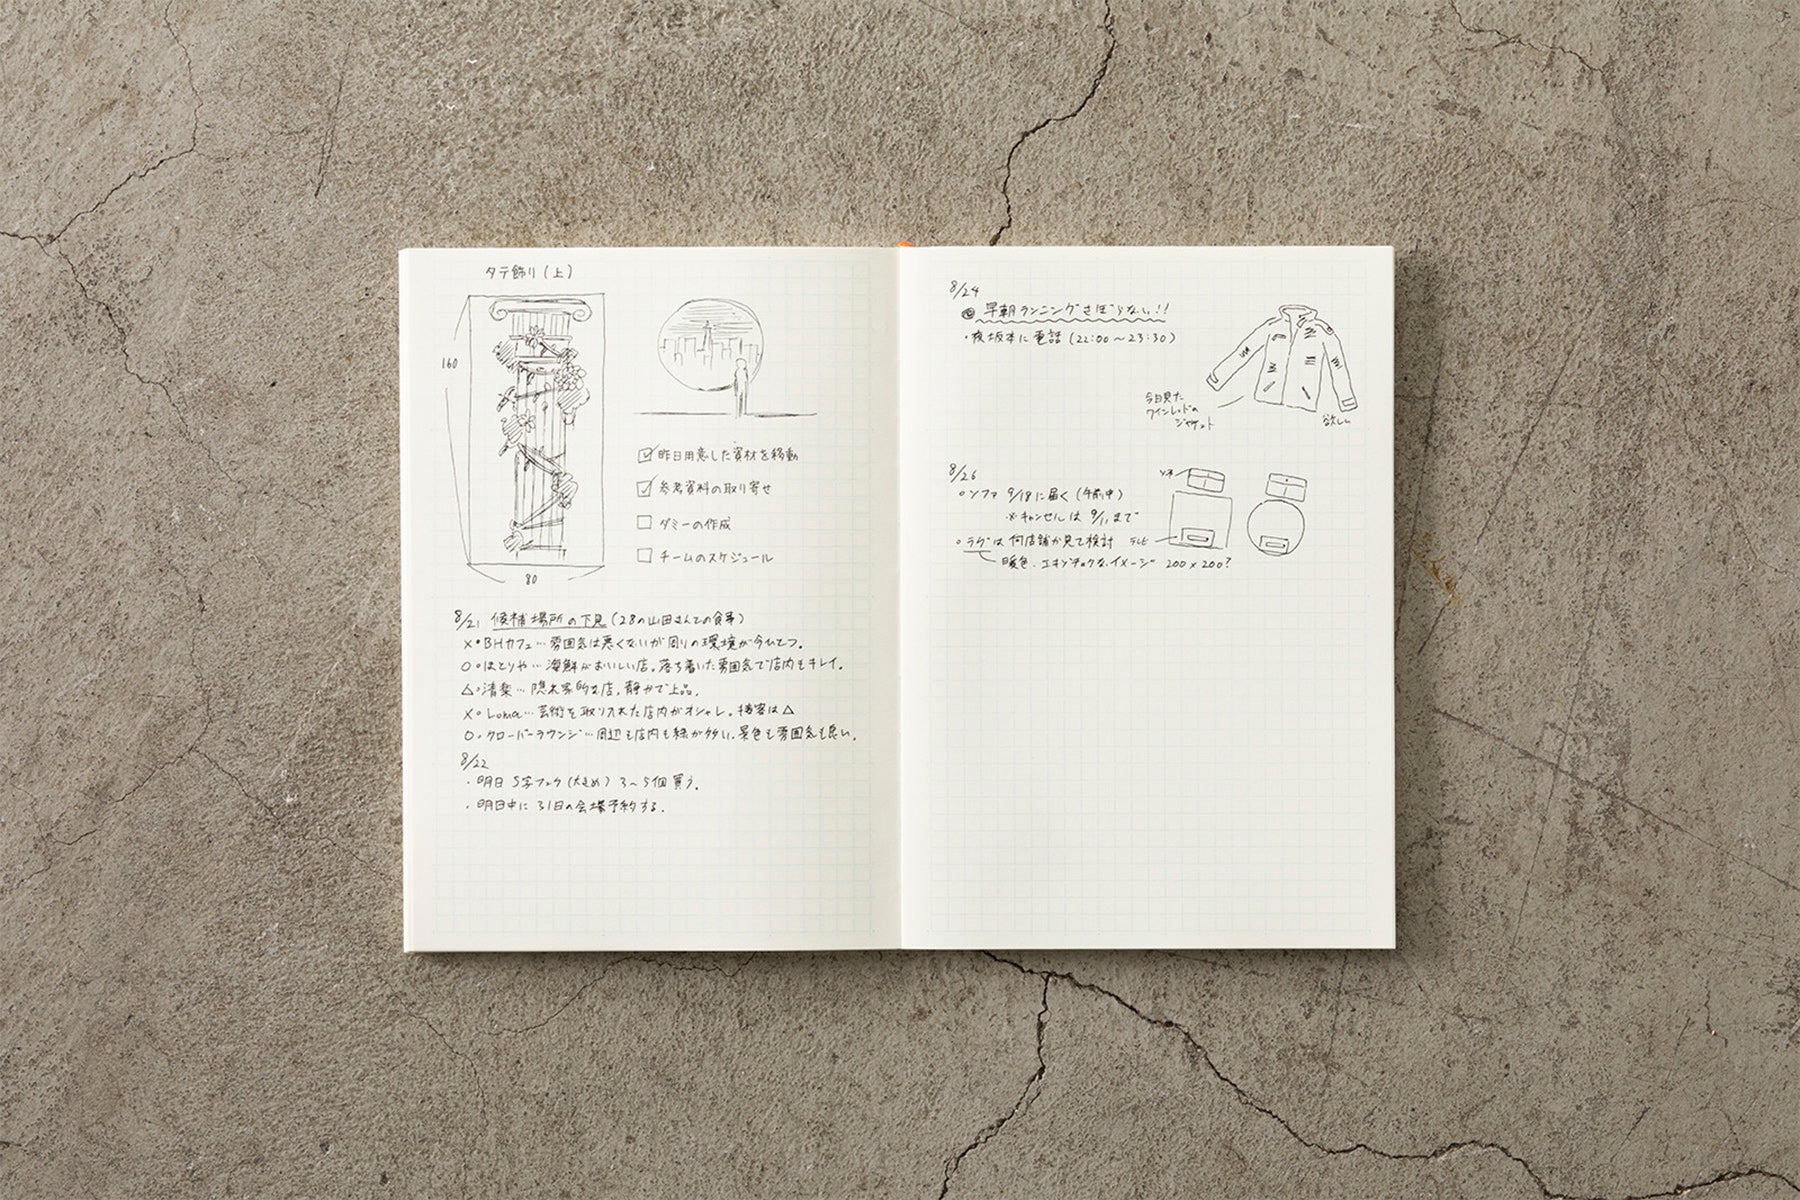 タテ飾り(上)
160
80
☑昨日用意した資材を移動
☑参考資料の取り寄せ
☐ダミーの作成
☐チームのスケジュール
8/21 候補場所の下見(28の山田さんとの食事)
×・BHカフェ…雰囲気は悪くないが周りの環境が今ひとつ。
○・はとりや…海鮮がおいしい店。落ち着いた雰囲気で店内もキレイ。
△・清楽…隠れ家的な店。静かで上品。
×・Loma…芸術を取り入れた店内がオシャレ。接客は△
○・クローバーラウンジ…周辺も店内も緑が多い。景色も雰囲気も良い。
8/22
・明日 S字フック(大きめ)3〜5個買う。
・明日中に31日の会場予約する。
8/24
早朝ランニングさぼらない!!
・夜坂本に電話(22:00〜23:30)
今日見た
ワインレッドの
ジャケット
欲しい
8/26
○ソファ 9/18に届く(午前中)
※キャンセルは 9/11まで
○ラグは何店舗か見て検討
暖色.エキゾチックなイメージ 200×200?
ソファ
テレビ